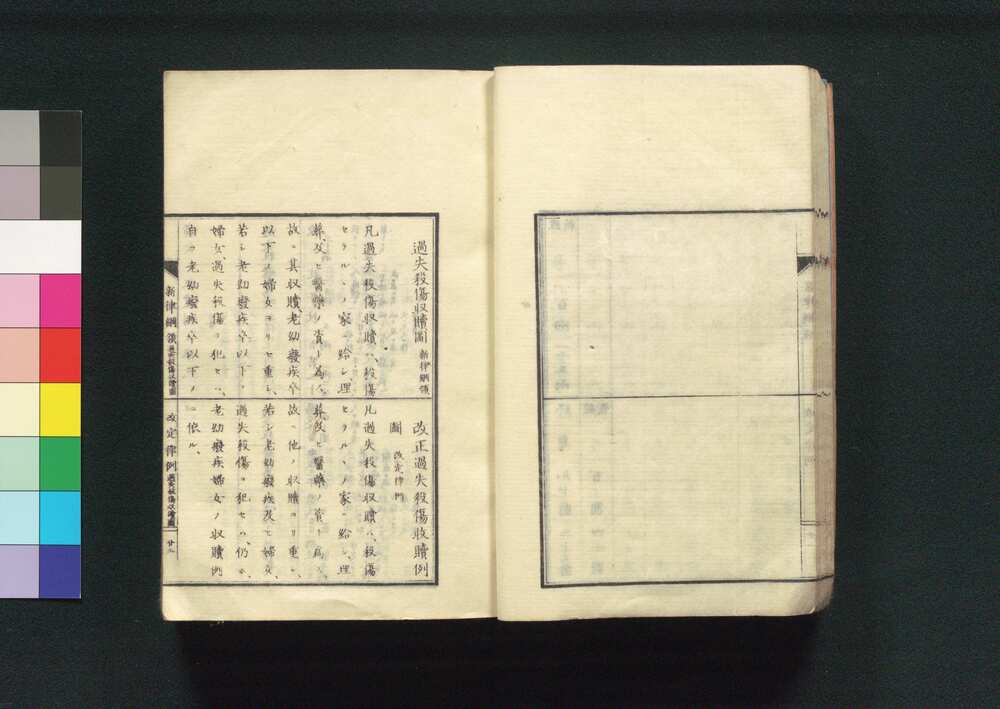 過失殺傷収贖圖 新律綱領
凡過失殺傷収贖ハ、殺傷
セラルヽノ家ニ給シ、埋
葬及ヒ醫藥ノ資ト為ス、
故ニ其収贖、老幼癈疾卒
以下ノ婦女ヨリモ重シ、
若シ老幼癈疾卒以下ノ
婦女、過失殺傷ヲ犯セハ、
自ラ老幼癈疾卒以下ノ
改正過失殺傷收贖例
圖 改定律例
凡過失殺傷収贖ハ、殺傷
セラルヽノ家ニ給シ、埋
葬及ヒ醫藥ノ資ト為ス、
故ニ他ノ収贖ヨリ重シ、
若シ老幼癈疾及ヒ婦女、
過失殺傷ヲ犯セハ、仍ホ、
老幼癈疾婦女ノ収贖例
ニ依ル、
新律綱領 過失殺傷収贖圖
改定律例 過失殺傷収贖圖